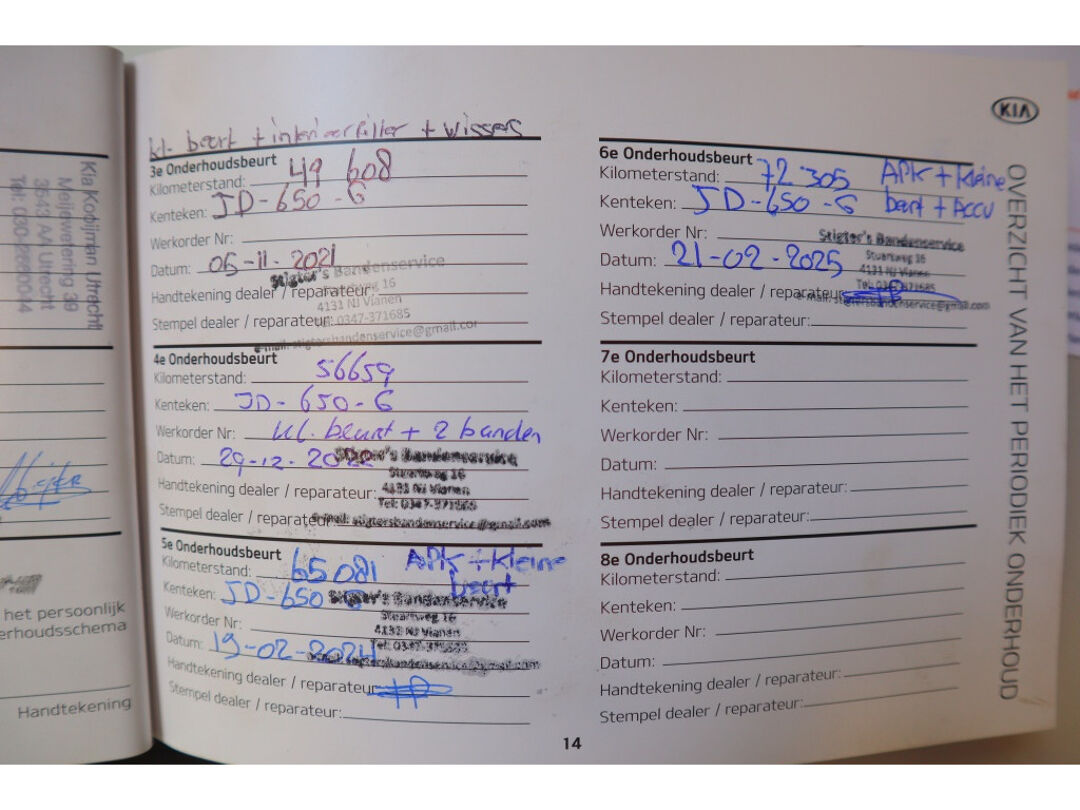 Kia Kooijman Utrecht
Meijewetering 39
3543 AA Utrecht
Tel: 030-
het persoonlijk
erhoudsschema
Handtekening
kl. beurt + interieurfilter + wissers
3e Onderhoudsbeurt
Kilometerstand: 49 608
Kenteken: JD-650-G
Werkorder Nr:
Datum: 05-11-2021
Stigter's Bandenservice
Stuartweg 16
Handtekening dealer / reparateur:
4131 NJ Vianen
Stempel dealer / reparateur: 0347-371685
e-mail: stigtersbandenservice@gmail.com
4e Onderhoudsbeurt
Kilometerstand: 56659
Kenteken: JD-650-G
Werkorder Nr: kl. beurt + 2 banden
Datum: 29-12-2022 Stigter's Bandenservice
Stuartweg 16
Handtekening dealer / reparateur: 4131 NJ Vianen
Tel: 0347-371685
Stempel dealer / reparateur: e-mail: stigtersbandenservice@gmail.com
5e Onderhoudsbeurt
Kilometerstand: 65081 APK + kleine beurt
Kenteken: JD-650-G Stigter's Bandenservice
Stuartweg 16
Werkorder Nr: 4131 NJ Vianen
Datum: 19-02-2024
stigtersbandenservice@gmail.com
Handtekening dealer / reparateur:
Stempel dealer / reparateur:
KIA
6e Onderhoudsbeurt
Kilometerstand: 72305 APK + kleine
Kenteken: JD-650-G beurt + Accu
Werkorder Nr: Stigter's Bandenservice
Stuartweg 16
Datum: 21-02-2025 4131 NJ Vianen
Tel: 0347-371685
Handtekening dealer / reparateur:
e-mail: stigtersbandenservice@gmail.com
Stempel dealer / reparateur:
7e Onderhoudsbeurt
Kilometerstand:
Kenteken:
Werkorder Nr:
Datum:
Handtekening dealer / reparateur:
Stempel dealer / reparateur:
8e Onderhoudsbeurt
Kilometerstand:
Kenteken:
Werkorder Nr:
Datum:
Handtekening dealer / reparateur:
Stempel dealer / reparateur:
OVERZICHT VAN HET PERIODIEK ONDERHOUD
14